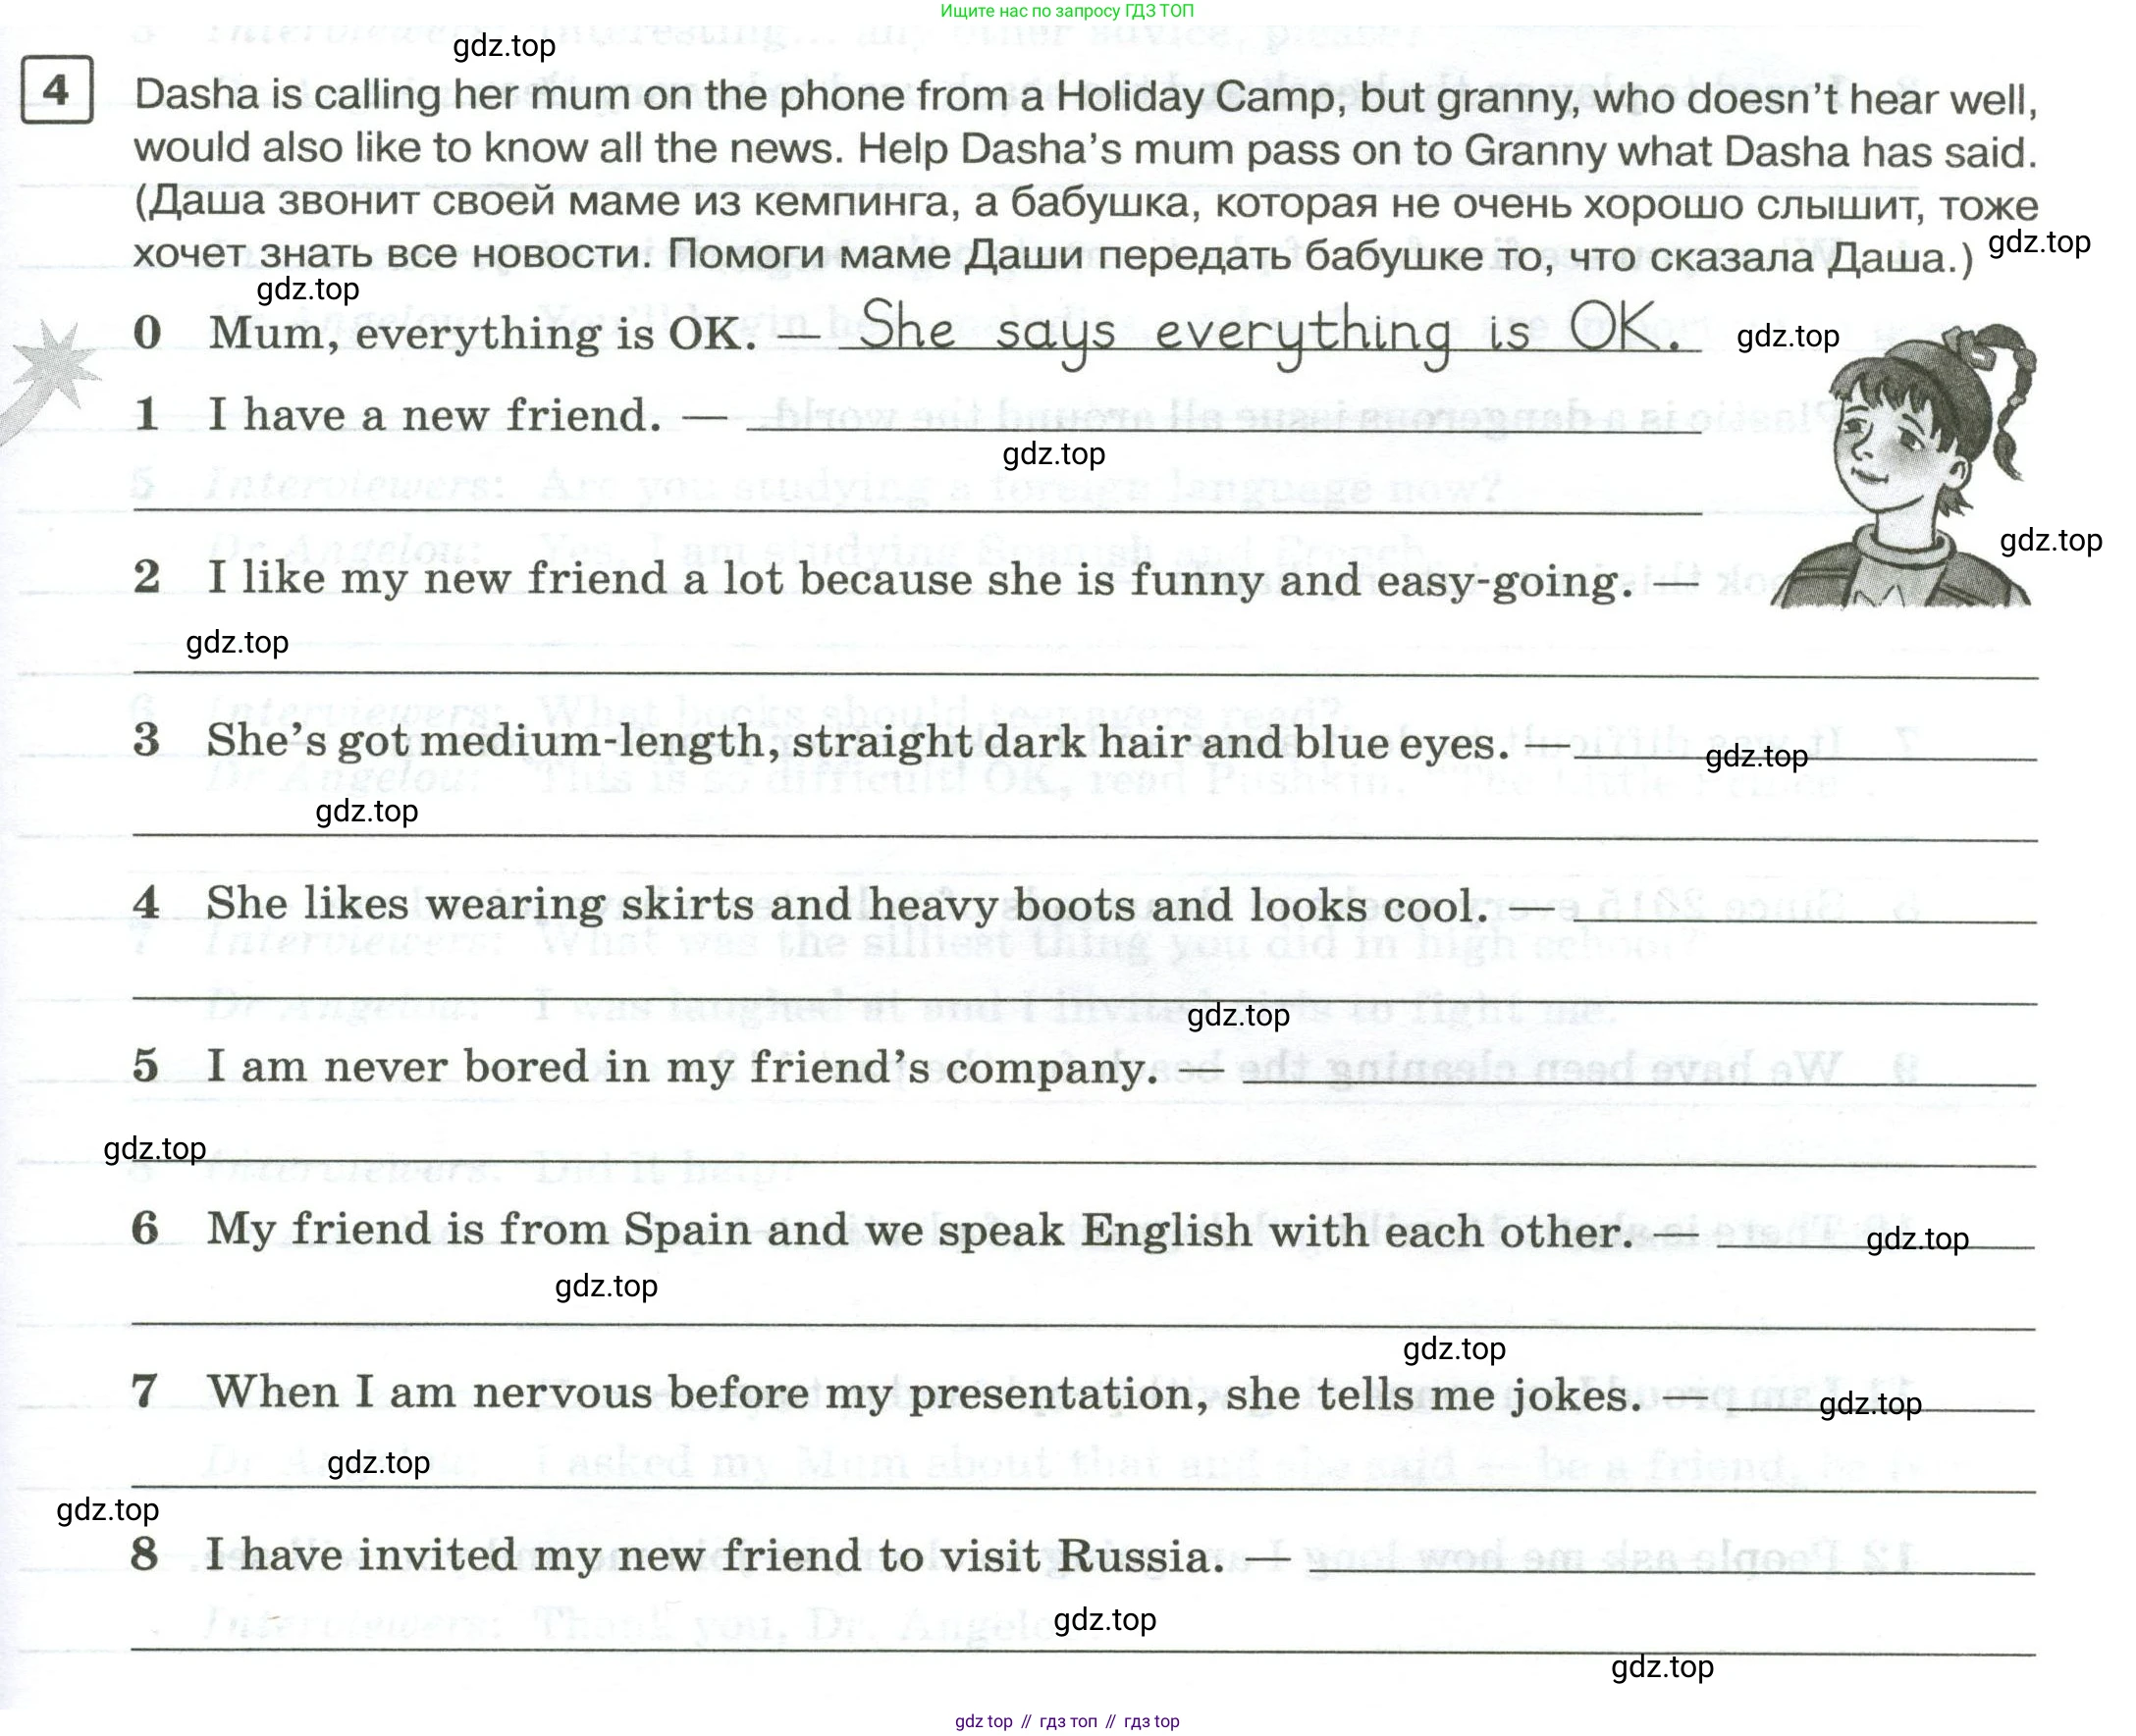 Ищите нас по запросу ГДЗ ТОП
gdz.top
4 Dasha is calling her mum on the phone from a Holiday Camp, but granny, who doesn't hear well,
would also like to know all the news. Help Dasha's mum pass on to Granny what Dasha has said.
(Даша звонит своей маме из кемпинга, а бабушка, которая не очень хорошо слышит, тоже
хочет знать все новости. Помоги маме Даши передать бабушке то, что сказала Даша.)
gdz.top
gdz.top
0 Mum, everything is OK. — She says everything is OK.
gdz.top
1 I have a new friend. —
gdz.top
gdz.top
2 I like my new friend a lot because she is funny and easy-going. —
gdz.top
3 She's got medium-length, straight dark hair and blue eyes. —
gdz.top
gdz.top
4 She likes wearing skirts and heavy boots and looks cool. —
gdz.top
5 I am never bored in my friend's company. —
gdz.top
6 My friend is from Spain and we speak English with each other. —
gdz.top
gdz.top
gdz.top
7 When I am nervous before my presentation, she tells me jokes. —
gdz.top
gdz.top
gdz.top
8 I have invited my new friend to visit Russia. —
gdz.top
gdz.top
gdz top // гдз топ // гдз top